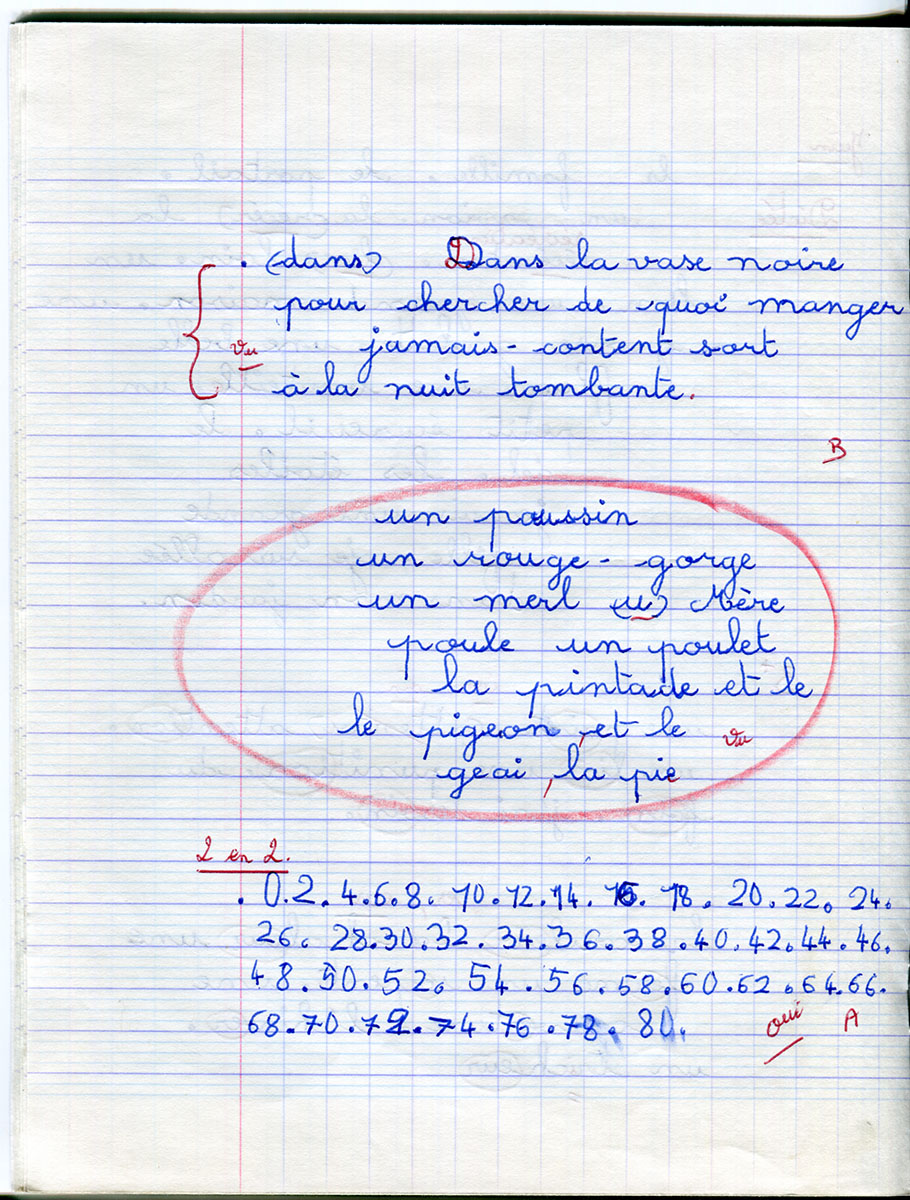 . (dans) Dans la vase noire
pour chercher de quoi manger
vu jamais-content sort
à la nuit tombante.
B
un poussin
un rouge-gorge
un merl (u) Mère
poule un poulet
la pintade et le
le pigeon, et le vu
geai, la pie
2 en 2.
. 0.2.4.6.8.10.12.14.16.18.20.22.24.
26.28.30.32.34.36.38.40.42.44.46.
48.50.52.54.56.58.60.62.64.66.
68.70.72.74.76.78.80. oui A